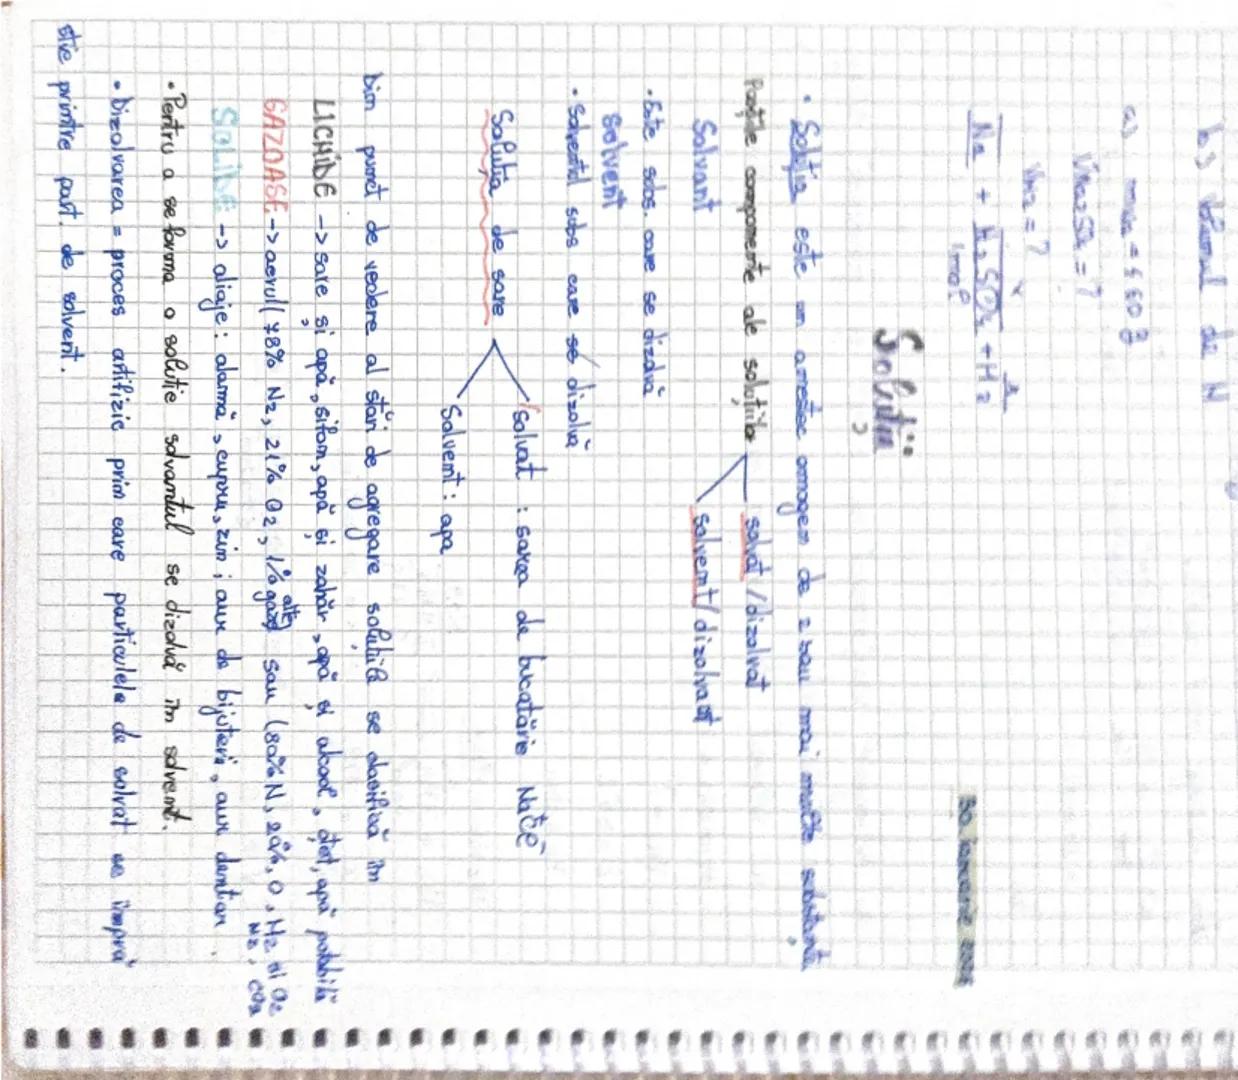 b) Volumul de H
a) mNa = 460 g
VH2 = ?
Na + H2SO4 + H2
1mol
30 ianuarie
Soluții
• Soluția este un amestec omogen de 2 sau mai multe substanțe
Părțile componente ale soluțiilor
solvat / dizolvat
solvent / dizolvant
Solvant
• Este subs. care se dizolvă
Solvent
• Solventul subs care se dizolvă
Soluția de sare
Solvat : sarea de bucatărie NaCl
Solvent : apa
Din punct de vedere al stări de agregare soluțiile se clasifică în
LICHIDE -> sare și apă, sifon, apă și zahăr, apă și alcool, oțet, apă potabilă
GAZOASE -> aerul (78% N2, 21% O2, 1% alte gaze) sau (80% N, 20%, O, H2 și O2
N2, CO2
SOLIDE -> aliaje: alamă, cupru, zin; aur de bijuteri, aur dentar.
• Pentru a se forma o soluție solvantul se dizolvă în solvent.
• Dizolvarea = proces antifizic prin care particulele de solvat se împră
știe printre part. de solvent.